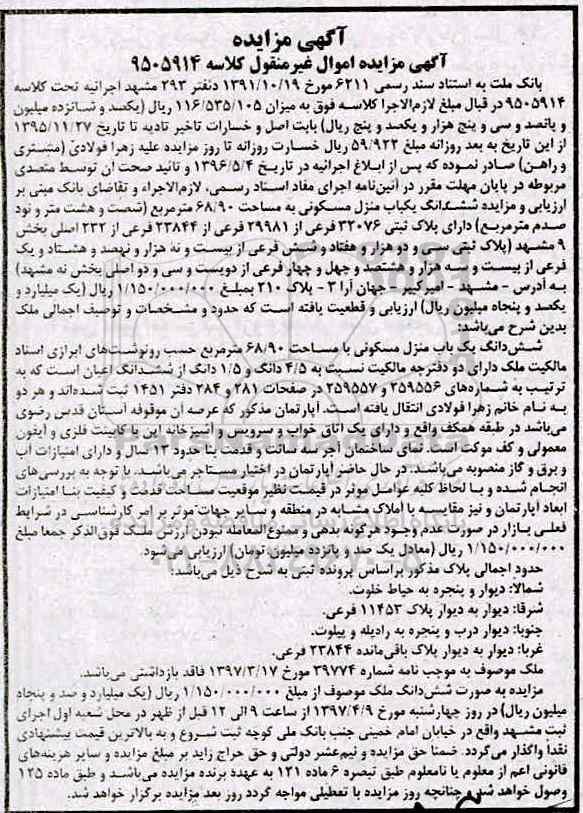 آگهی مزایده
آگهی مزایده اموال غیرمنقول کلاسه ۹۵۰۵۹۱۴
بانک ملت به استناد سند رسمی ۶۲۱۱ مورخ ۱۳۹۱/۱۰/۱۹ دفتر ۲۹۳ مشهد اجرائیه تحت کلاسه
۹۵۰۵۹۱۴ در قبال مبلغ لازم‌الاجرا کلاسه فوق به میزان ۱۱۶/۵۳۵/۱۰۵ ریال (یکصد و شانزده میلیون
و پانصد و سی و پنج هزار و یکصد و پنج ریال) بابت اصل و خسارات تاخیر تادیه تا تاریخ ۱۳۹۵/۱۱/۲۷
از این تاریخ به بعد روزانه مبلغ ۵۹/۹۲۲ ریال خسارت روزانه تا روز مزایده علیه زهرا فولادی (مشتری
و راهن) صادر نموده که پس از ابلاغ اجرائیه در تاریخ ۱۳۹۶/۵/۴ و تائید صحت ان توسط متصدی
مربوطه در پایان مهلت مقرر در آئین‌نامه اجرای مفاد اسناد رسمی، لازم‌الاجراء و تقاضای بانک مبنی بر
ارزیابی و مزایده ششدانگ یکباب منزل مسکونی به مساحت ۶۸/۹۰ مترمربع (شصت و هشت متر و نود
صدم مترمربع) دارای پلاک ثبتی ۳۲۰۷۶ فرعی از ۲۹۹۸۱ فرعی از ۲۳۸۴۴ فرعی از ۲۳۲ اصلی بخش
۹ مشهد (پلاک ثبتی سی و دو هزار و هفتاد و شش فرعی از بیست و نه هزار و نهصد و هشتاد و یک
فرعی از بیست و سه هزار و هشتصد و چهل و چهار فرعی از دویست و سی و دو اصلی بخش نه مشهد)
به آدرس - مشهد - امیرکبیر - جهان آرا ۳ - پلاک ۲۱۰ بمبلغ ۱/۱۵۰/۰۰۰/۰۰۰ ریال (یک میلیارد و
یکصد و پنجاه میلیون ریال) ارزیابی و قطعیت یافته است که حدود و مشخصات و توصیف اجمالی ملک
بدین شرح می‌باشد:
شش‌دانگ یک باب منزل مسکونی با مساحت ۶۸/۹۰ مترمربع حسب رونوشت‌های ابرازی اسناد
مالکیت ملک دارای دو دفترچه مالکیت نسبت به ۴/۵ دانگ و ۱/۵ دانگ از ششدانگ اعیان است که به
ترتیب به شماره‌های ۲۵۹۵۵۶ و ۲۵۹۵۵۷ در صفحات ۲۸۱ و ۲۸۴ دفتر ۱۴۵۱ ثبت شده‌اند و هر دو
به نام خانم زهرا فولادی انتقال یافته است. آپارتمان مذکور که عرصه ان موقوفه آستان قدس رضوی
می‌باشد در طبقه همکف واقع و دارای یک اتاق خواب و سرویس و آشپزخانه اپن با کابینت فلزی و آیفون
معمولی و کف موکت است. نمای ساختمان آجر سه سانت و قدمت بنا حدود ۱۳ سال و دارای امتیازات آب
و برق و گاز منصوبه می‌باشند. در حال حاضر آپارتمان در اختیار مستاجر می‌باشد. با توجه به بررسی‌های
انجام شده و با لحاظ کلیه عوامل موثر در قیمت نظیر موقعیت مساحت قدمت و کیفیت بنا امتیازات
ابعاد آپارتمان و نیز مقایسه با املاک مشابه در منطقه و سایر جهات موثر بر امر کارشناسی در شرایط
فعلی بازار در صورت عدم وجود هرگونه بدهی و ممنوع‌المعامله نبودن ارزش ملک فوق‌الذکر جمعا مبلغ
۱/۱۵۰/۰۰۰/۰۰۰ ریال (معادل یک صد و پانزده میلیون تومان) ارزیابی می‌شود.
حدود اجمالی پلاک مذکور براساس پرونده ثبتی به شرح ذیل می‌باشد:
شمالا: دیوار و پنجره به حیاط خلوت.
شرقا: دیوار به دیوار پلاک ۱۱۴۵۳ فرعی.
جنوبا: دیوار درب و پنجره به رادیله و پیلوت.
غربا: دیوار به دیوار پلاک باقی‌مانده ۲۳۸۴۴ فرعی.
ملک موصوف به موجب نامه شماره ۳۹۷۷۴ مورخ ۱۳۹۷/۳/۱۷ فاقد بازداشتی می‌باشد.
مزایده به صورت شش‌دانگ ملک موصوف از مبلغ ۱/۱۵۰/۰۰۰/۰۰۰ ریال (یک میلیارد و صد و پنجاه
میلیون ریال) در روز چهارشنبه مورخ ۱۳۹۷/۴/۹ از ساعت ۹ الی ۱۲ قبل از ظهر در محل شعبه اول اجرای
ثبت مشهد واقع در خیابان امام خمینی جنب بانک ملی کوچه ثبت شروع و به بالاترین قیمت پیشنهادی
نقدا واگذار می‌گردد. ضمنا حق مزایده و نیم‌عشر دولتی و حق حراج زاید بر مبلغ مزایده و سایر هزینه‌های
قانونی اعم از معلوم یا نامعلوم طبق تبصره ۶ ماده ۱۲۱ به عهده برنده مزایده می‌باشد و طبق ماده ۱۲۵
وصول خواهد شد و چنانچه روز مزایده با تعطیلی مواجه گردد روز بعد مزایده برگزار خواهد شد.